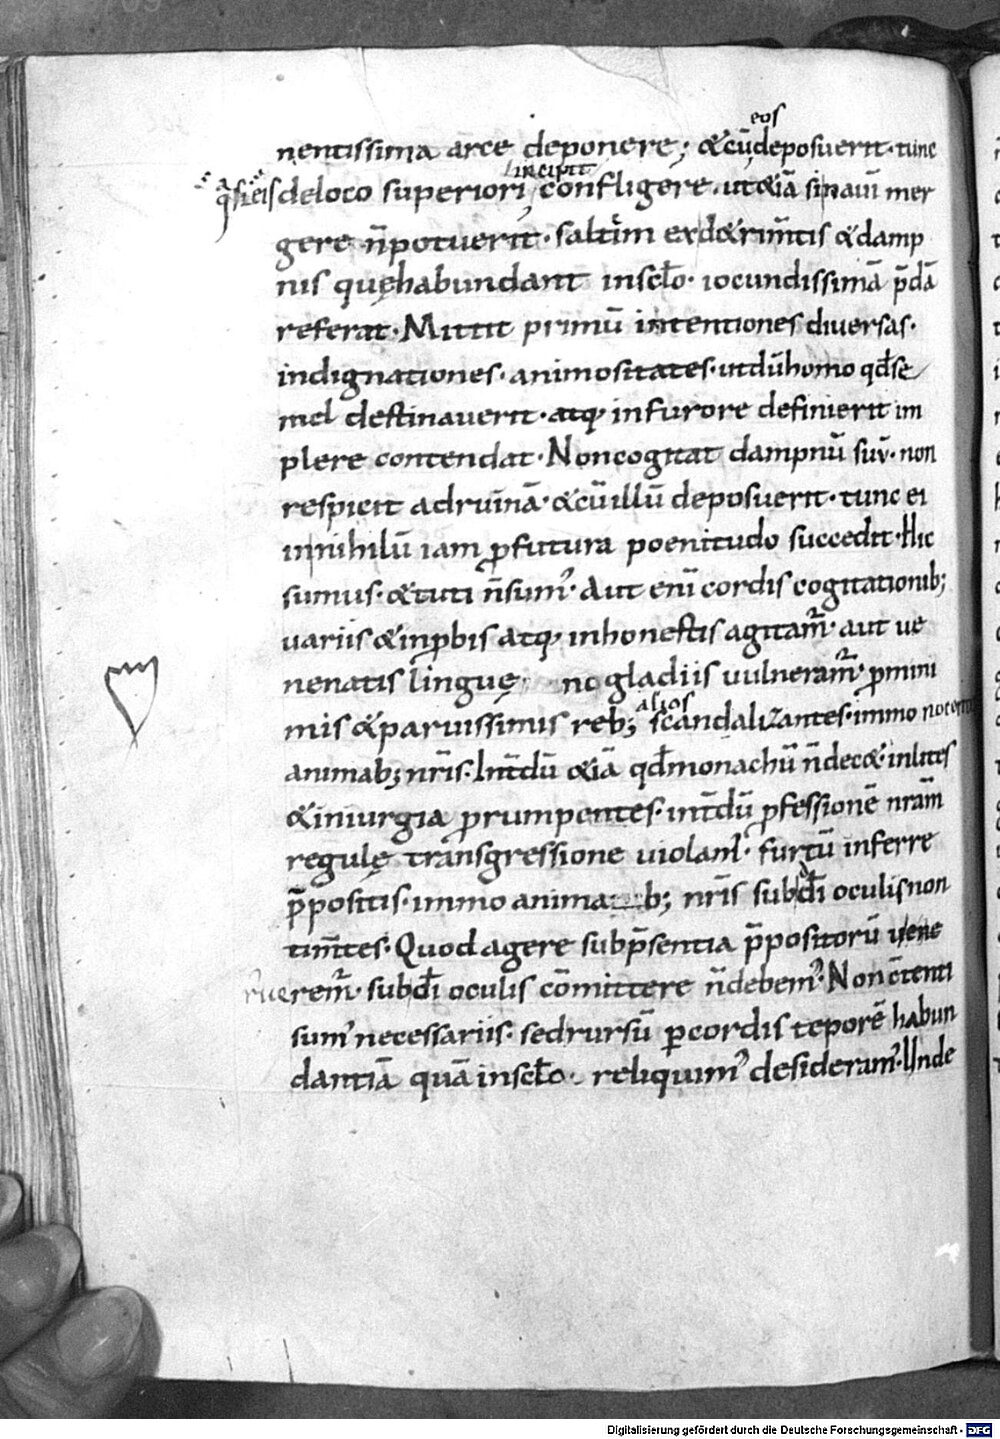 eos
nentissima arce deponere; &cū deposuerit· tunc
incipit
deloco superiori, confligere· ut&iā si naui mer
gere n̄potuerit· saltim exd&rim̄tis &damp
nis quęhabundant insc̄lo· iocundissimā p̄dā
referat· Mittit primū intentiones diversas·
indignationes· animositates· utdūhomo qd̄se
mel destinaverit· atq; infurore definierit im
plere contendat· Noncogitat dampnū suū· non
respicit adruinā· &cū illū deposuerit· tunc ei
innihilū iam ꝓfutura poenitudo succedit· Hic
sumus· &tuti n̄sum᾽ Aut eni᷒ cordis cogitationib;
variis &inꝓbis atq; inhonestis agitam̄r· aut ve
nenatis linguę no gladiis vulneram̄r· ꝑmini
alios
mis &parvissimis reb; scandalizantes· immo nocentes
animab; nr̄is· Int̄dū &iā qd̄monachū n̄dec&· inlites
&iniurgia ꝓrumpentes· int̄dū ꝓfessionē nr̄am
regulę transgressione violam᾽· furtū inferre
p̄positis· immo anima b; nr̄is subdī oculis non
tim̄tes· Quod agere subp̄sentia p̄positorū vere
rem̄r· subdī oculis cōmittere n̄debem᾽· Non c̄tenti
sum᾽ necessariis· sedrursū ꝑcordis teporē habun
dantiā quā insc̄lo· reliquim᾽ desideram᾽· Unde
Digitalisierung gefördert durch die Deutsche Forschungsgemeinschaft - DFG